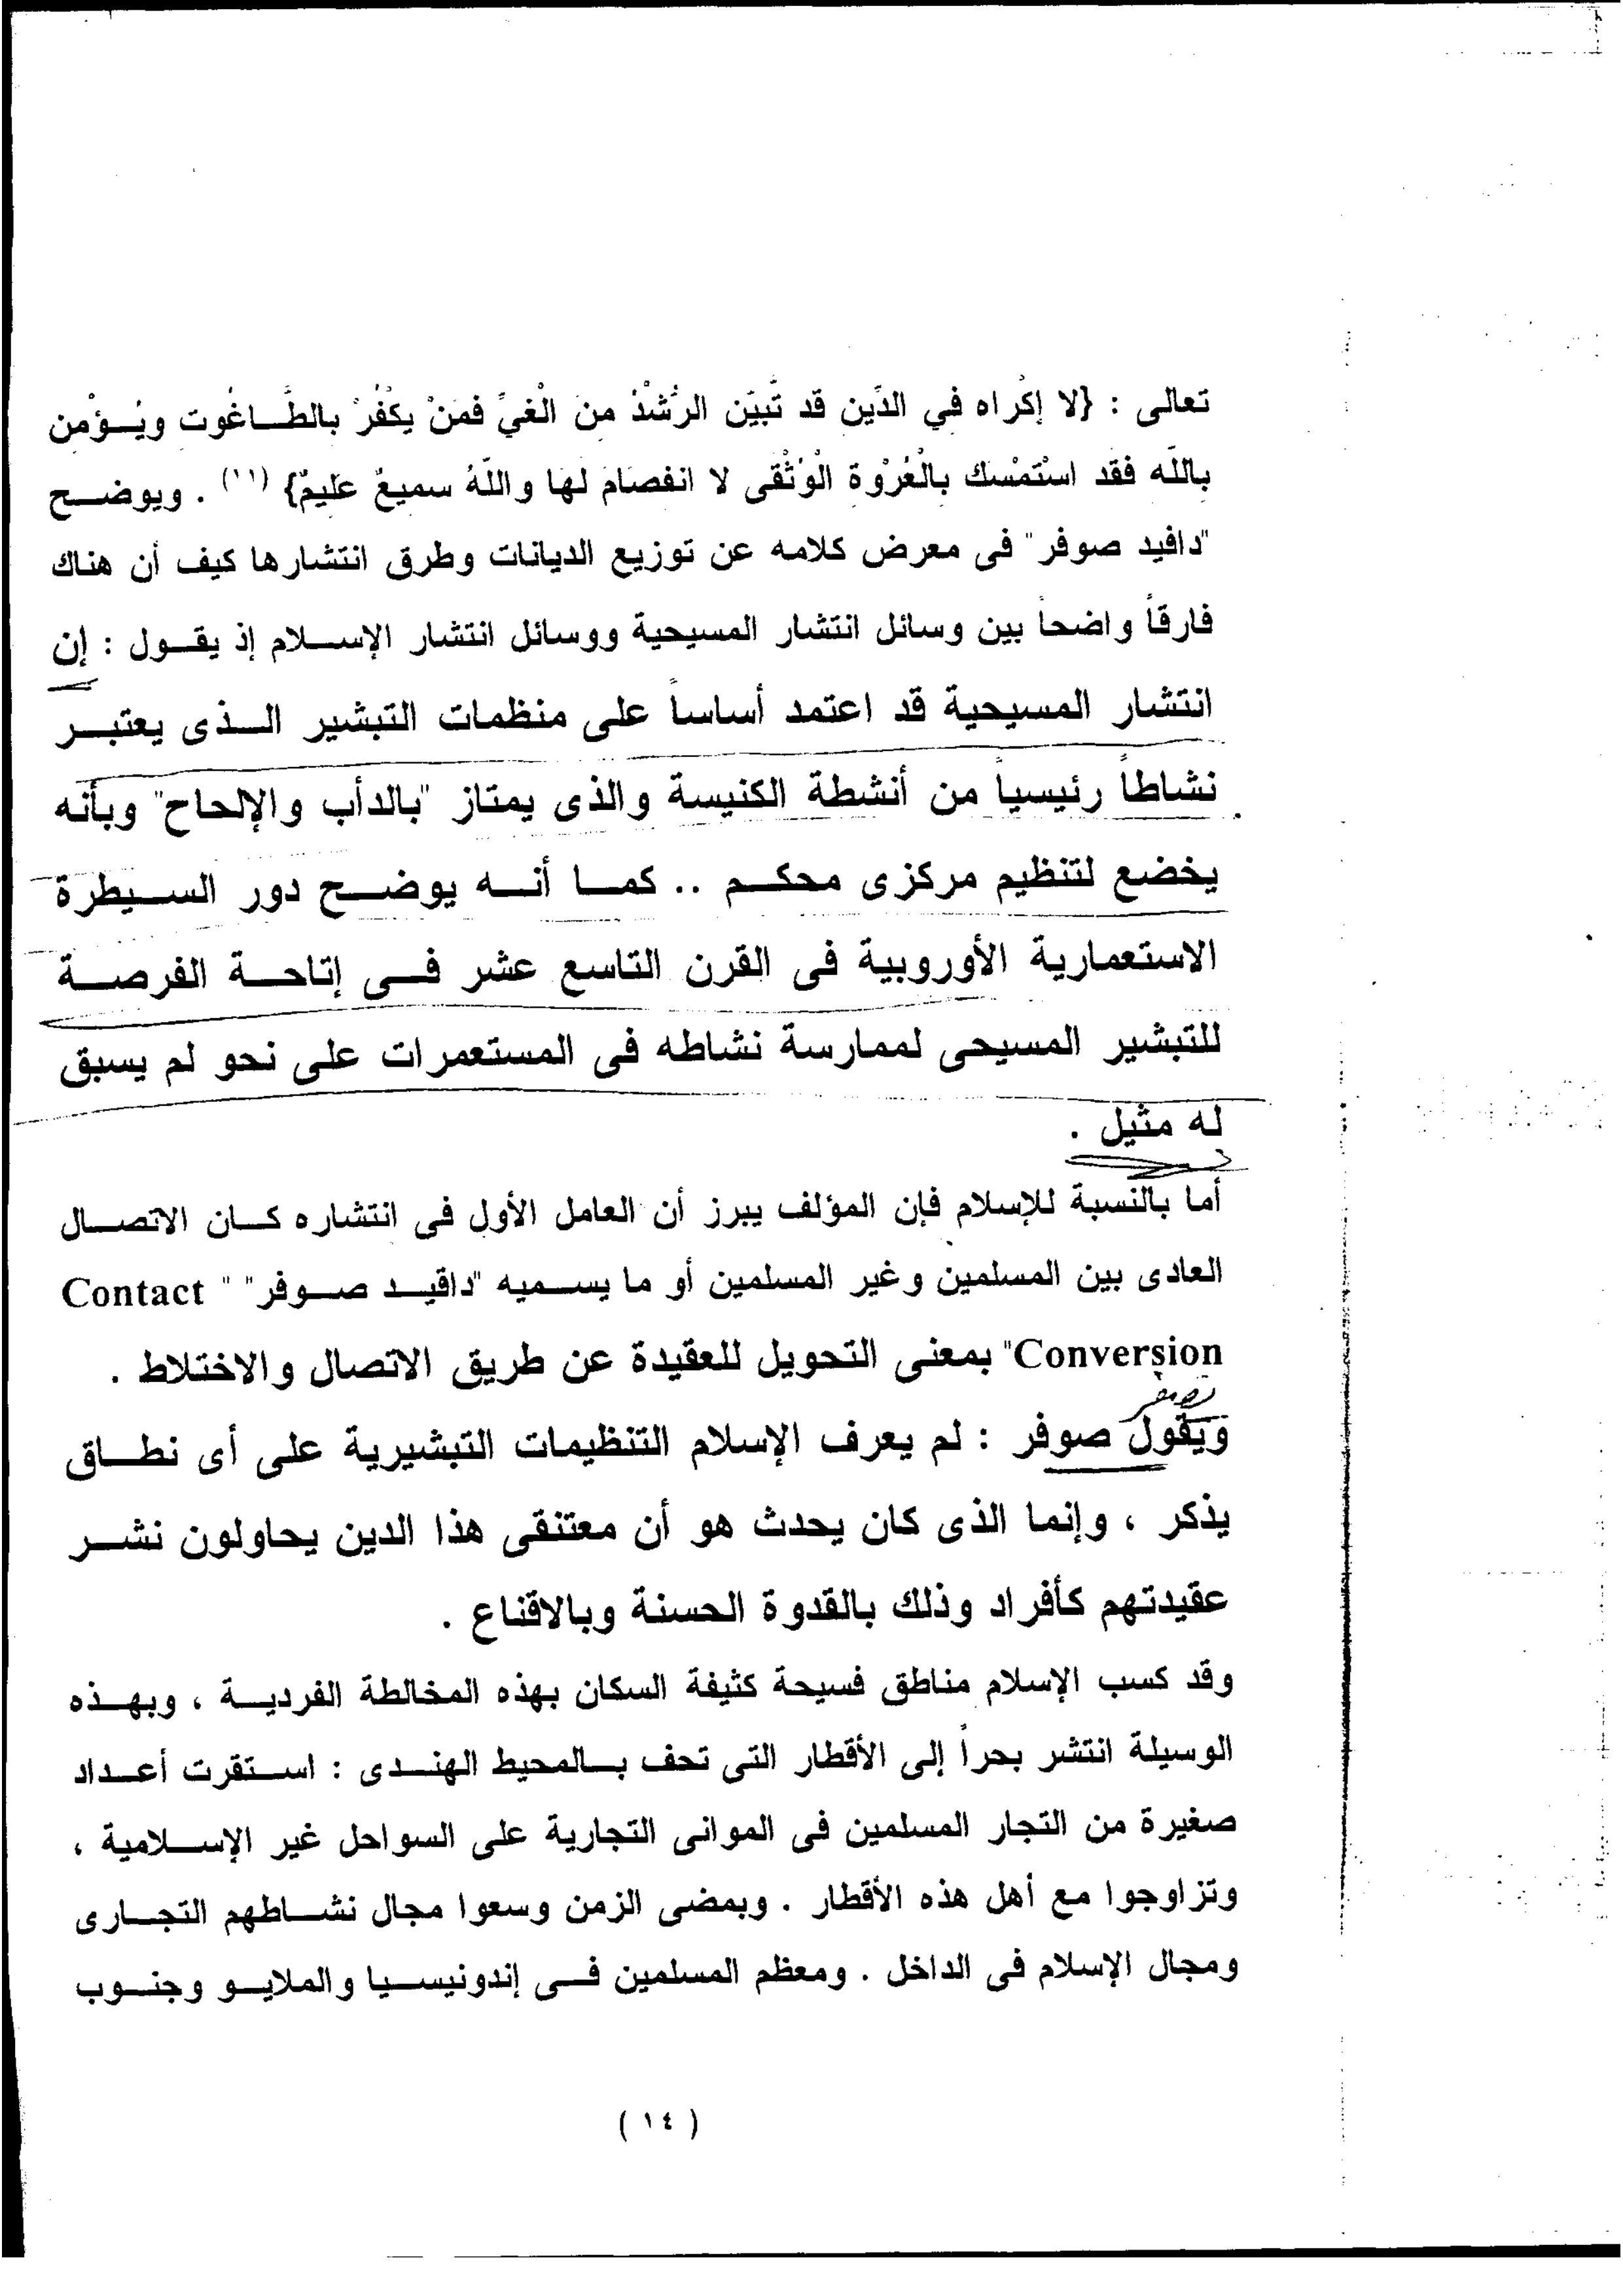 تعالى : {لا إكْراه في الدِّين قد تَّبيَّن الرُّشْدُ من الْغيِّ فمَنْ يكْفُرْ بالطَّاغُوت ويُؤْمن
بالله فقد اسْتمْسك بالْعُرْوة الْوُثْقى لا انفصام لها واللَّهُ سميعٌ عليمٌ} (١١) . ويوضح
"دافيد صوفر" فى معرض كلامه عن توزيع الديانات وطرق انتشارها كيف أن هناك
فارقاً واضحاً بين وسائل انتشار المسيحية ووسائل انتشار الإسلام إذ يقول : إن
انتشار المسيحية قد اعتمد أساساً على منظمات التبشير الذى يعتبر
نشاطاً رئيسياً من أنشطة الكنيسة والذى يمتاز "بالدأب والإلحاح" وبأنه
يخضع لتنظيم مركزى محكم .. كما أنه يوضح دور السيطرة
الاستعمارية الأوروبية فى القرن التاسع عشر فى إتاحة الفرصة
للتبشير المسيحى لممارسة نشاطه فى المستعمرات على نحو لم يسبق
له مثيل .
أما بالنسبة للإسلام فإن المؤلف يبرز أن العامل الأول فى انتشاره كان الاتصال
العادى بين المسلمين وغير المسلمين أو ما يسميه "داقيد صوفر" " Contact
Conversion" بمعنى التحويل للعقيدة عن طريق الاتصال والاختلاط .
ويقول صوفر : لم يعرف الإسلام التنظيمات التبشيرية على أى نطاق
يذكر ، وإنما الذى كان يحدث هو أن معتنقى هذا الدين يحاولون نشر
عقيدتهم كأفراد وذلك بالقدوة الحسنة وبالاقناع .
وقد كسب الإسلام مناطق فسيحة كثيفة السكان بهذه المخالطة الفردية ، وبهذه
الوسيلة انتشر بحراً إلى الأقطار التى تحف بالمحيط الهندى : استقرت أعداد
صغيرة من التجار المسلمين فى الموانى التجارية على السواحل غير الإسلامية ،
وتزاوجوا مع أهل هذه الأقطار . وبمضى الزمن وسعوا مجال نشاطهم التجارى
ومجال الإسلام فى الداخل . ومعظم المسلمين فى إندونيسيا والملايو وجنوب
( ١٤ )